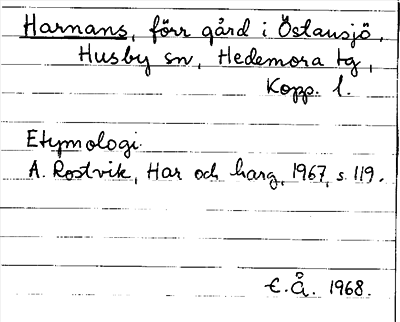 Harnans, förr gård i Östansjö,
Husby sn, Hedemora tg,
Kopp. l.
Etymologi
A. Rostvik, Har och harg, 1967, s. 119.
E.Å. 1968.